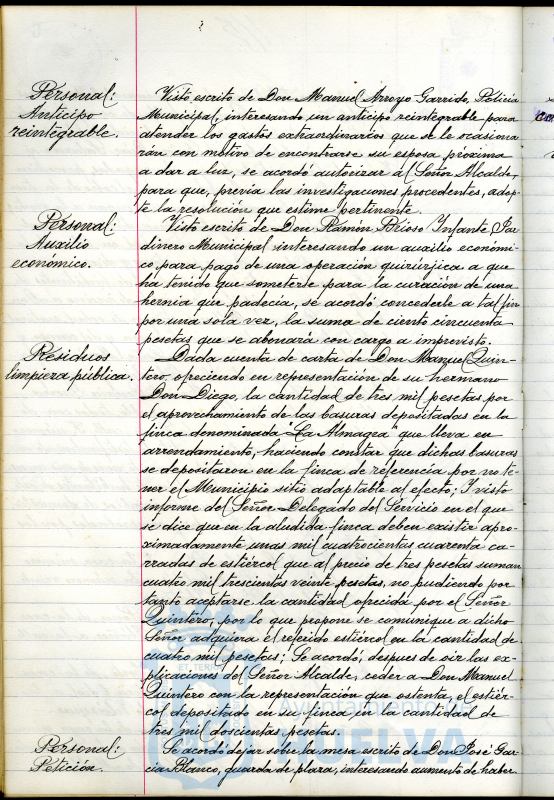 Personal:
Anticipo
reintegrable.
Visto escrito de Don Manuel Arroyo Garrido, Policia
Municipal, interesando un anticipo reintegrable para
atender los gastos extraordinarios que se le ocasiona
rán con motivo de encontrarse su esposa próxima
a dar a luz, se acordó autorizar á Señor Alcalde,
para que, previa las investigaciones procedentes, adop-
te la resolución que estime pertinente.
Personal:
Auxilio
económico.
Visto escrito de Don Ramón Brioso Infante, Jar
dinero Municipal interesando un auxilio económi-
co para pago de una operación quirúrjica a que
ha tenido que someterse para la curación de una
hernia que padecía, se acordó concederle a tal fin
por una sola vez, la suma de ciento cincuenta
pesetas que se abonará con cargo a imprevisto.
Residuos
limpieza pública.
Dada cuenta de carta de Don Manuel Quin-
tero, ofreciendo en representación de su hermano
Don Diego, la cantidad de tres mil pesetas por
el aprovechamiento de las basuras depositadas en la
finca denominada "La Almagra" que lleva en
arrendamiento, haciendo constar que dichas basuras
se depositaron en la finca de referencia por no te-
ner el Municipio sitio adaptable al efecto; Y visto
informe del Señor Delegado del Servicio en el que
se dice que en la aludida finca deben existir apro-
ximadamente unas mil cuatrocientas cuarenta ca-
rradas de estiércol que al precio de tres pesetas suman
cuatro mil trescientas veinte pesetas, no pudiendo por
tanto aceptarse la cantidad ofrecida por el Señor
Quintero, por lo que propone se comunique a dicho
Señor adquiera el referido estiércol en la cantidad de
cuatro mil pesetas; Se acordó, despues de oir las ex-
plicaciones del Señor Alcalde, ceder a Don Manuel
Quintero con la representación que ostenta, el estiér-
col depositado en su finca en la cantidad de
tres mil doscientas pesetas.
Personal:
Petición.
Se acordó dejar sobre la mesa escrito de Don José Gar
cía Blanco, guarda de plaza, interesando aumento de haber
Ayuntamiento de
HUELVA